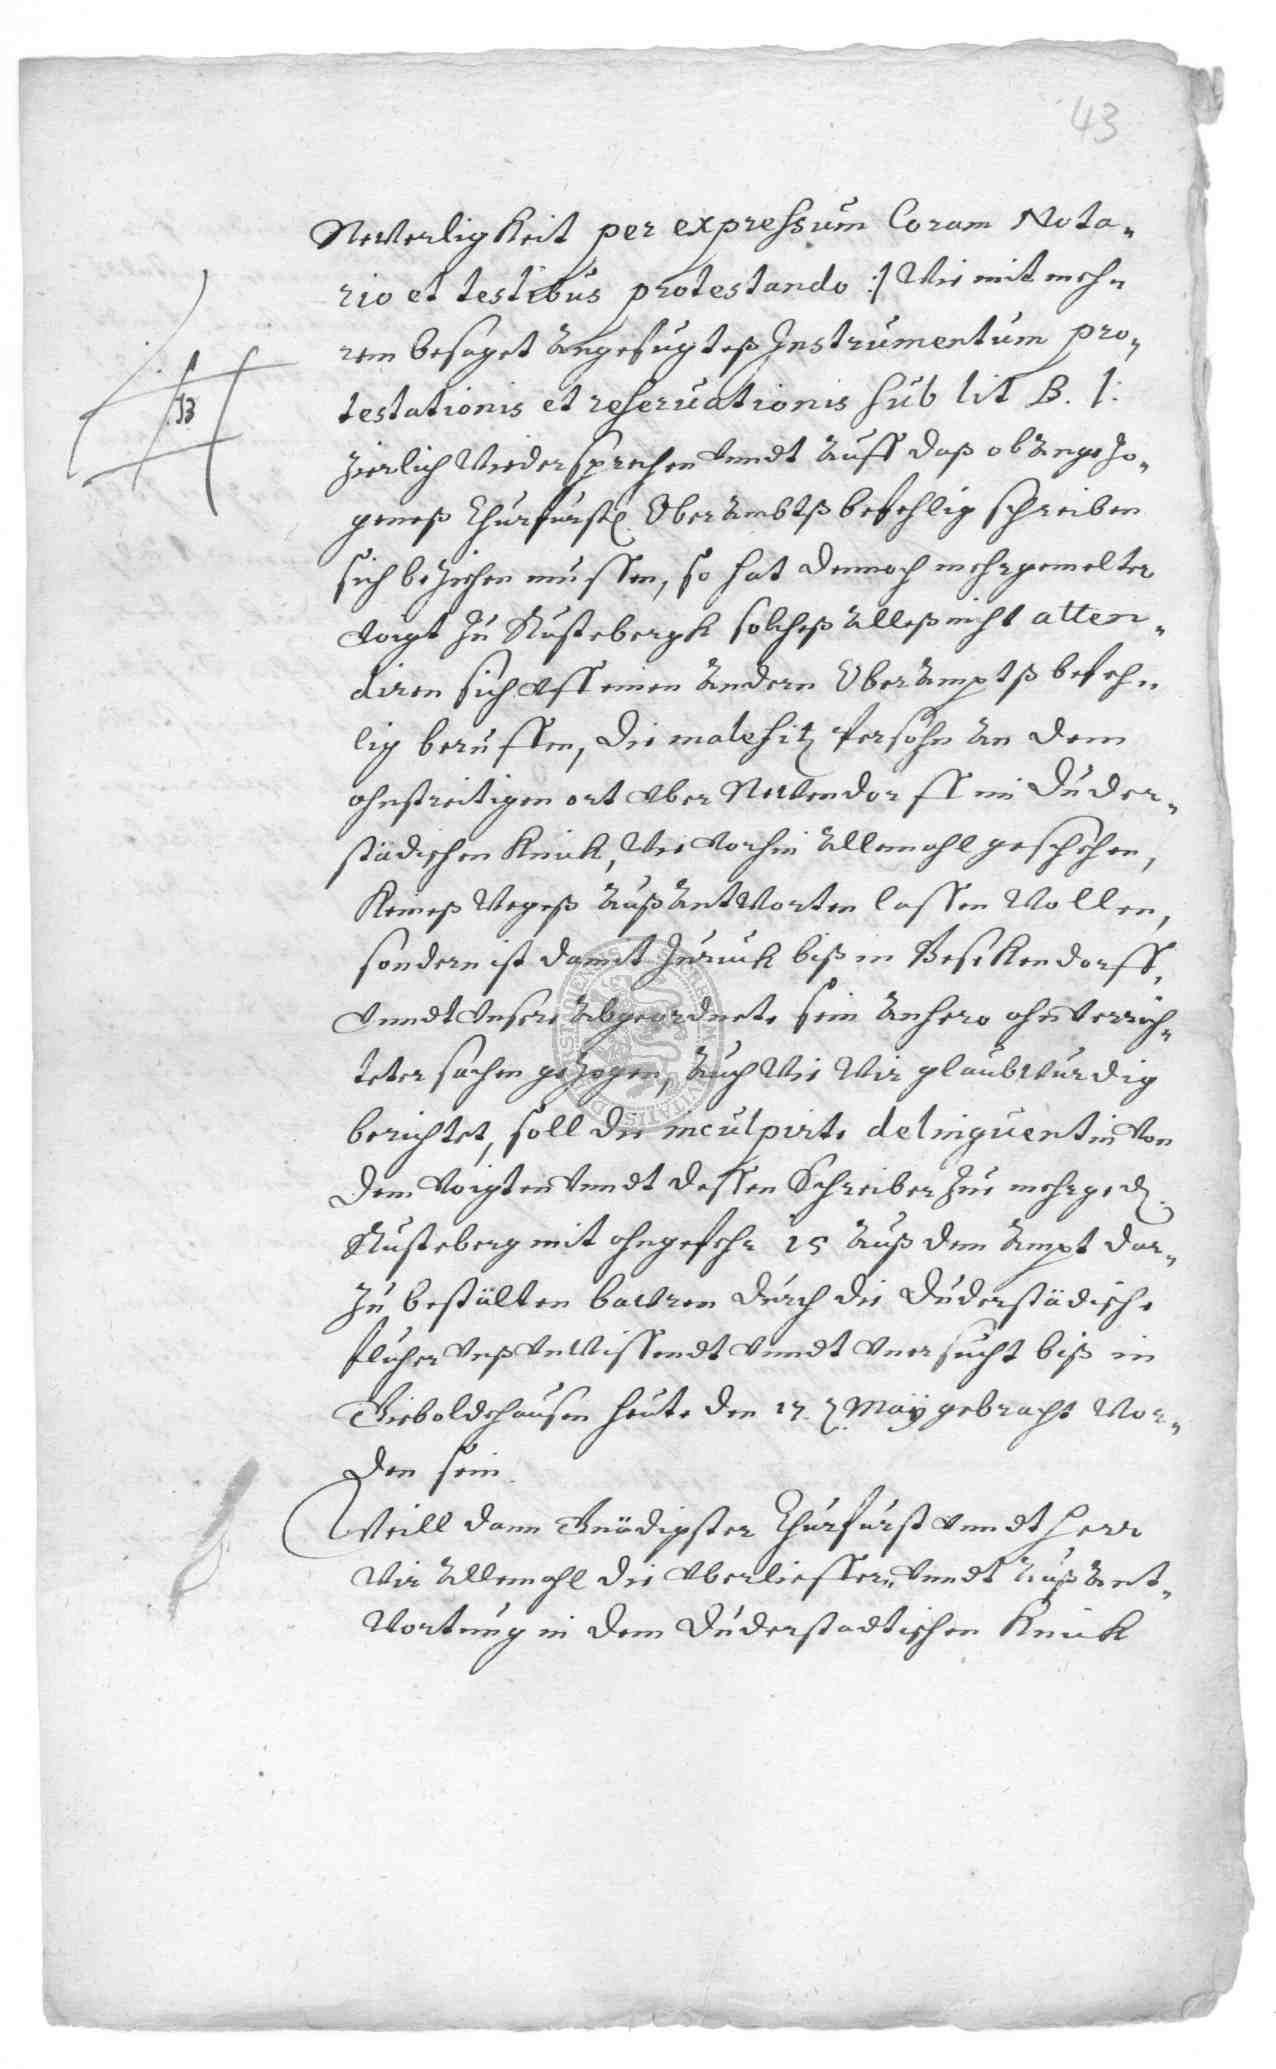 43
Newerligkeit per expressum Coram Nota„
rio et testibus protestando :/ Wie mit meh„
rem besaget angefugteß Instrumentum pro„
testationis et reseruationis sub lit B. /:
B
zierlich Wiedersprechen Vnndt auff daß obangezo„
geneß Churfurstl. Oberambtß befehlig schreiben
sich beziehen mussen, so hat dennoch mehrgemelter
Voigt zu Rustebergk solcheß alleß nicht atten„
diren sich vff einen andern Oberamptß befeh„
lig beruffen, die malefitz Persohn an dem
ohnstreitigen ort vber Newendorff im Duder„
städischen Knick, Wie vorhin allemahl geschehen,
Keineß Wegeß außantworten lassen Wollen,
sondern ist damit zuruck biß in Besekendorff,
Vnndt Vnsere abgeordnete sein anhero ohnverrich„
teter sachen gezogen, auch Wie Wir glaubwurdig
berichtet, soll die inculpirte delinquentin von
dem Voigten Vnndt dessen Schreiber zue mehrged.
Rusteberg mit ohngefehr 15 auß dem Ampt dar„
zu bestälten bawren durch die Duderstädische
fluher Vnß Vnwissendt Vnndt Vnersucht biß in
Gieboldehausen heute den 17. Maÿ gebracht Wor„
den sein.
Weill dann Gnädigster Churfurst Vnndt Herr
Wir allemahl die Vberlieffer„ Vnndt außant„
Wortung in dem Duderstadtischen Knick